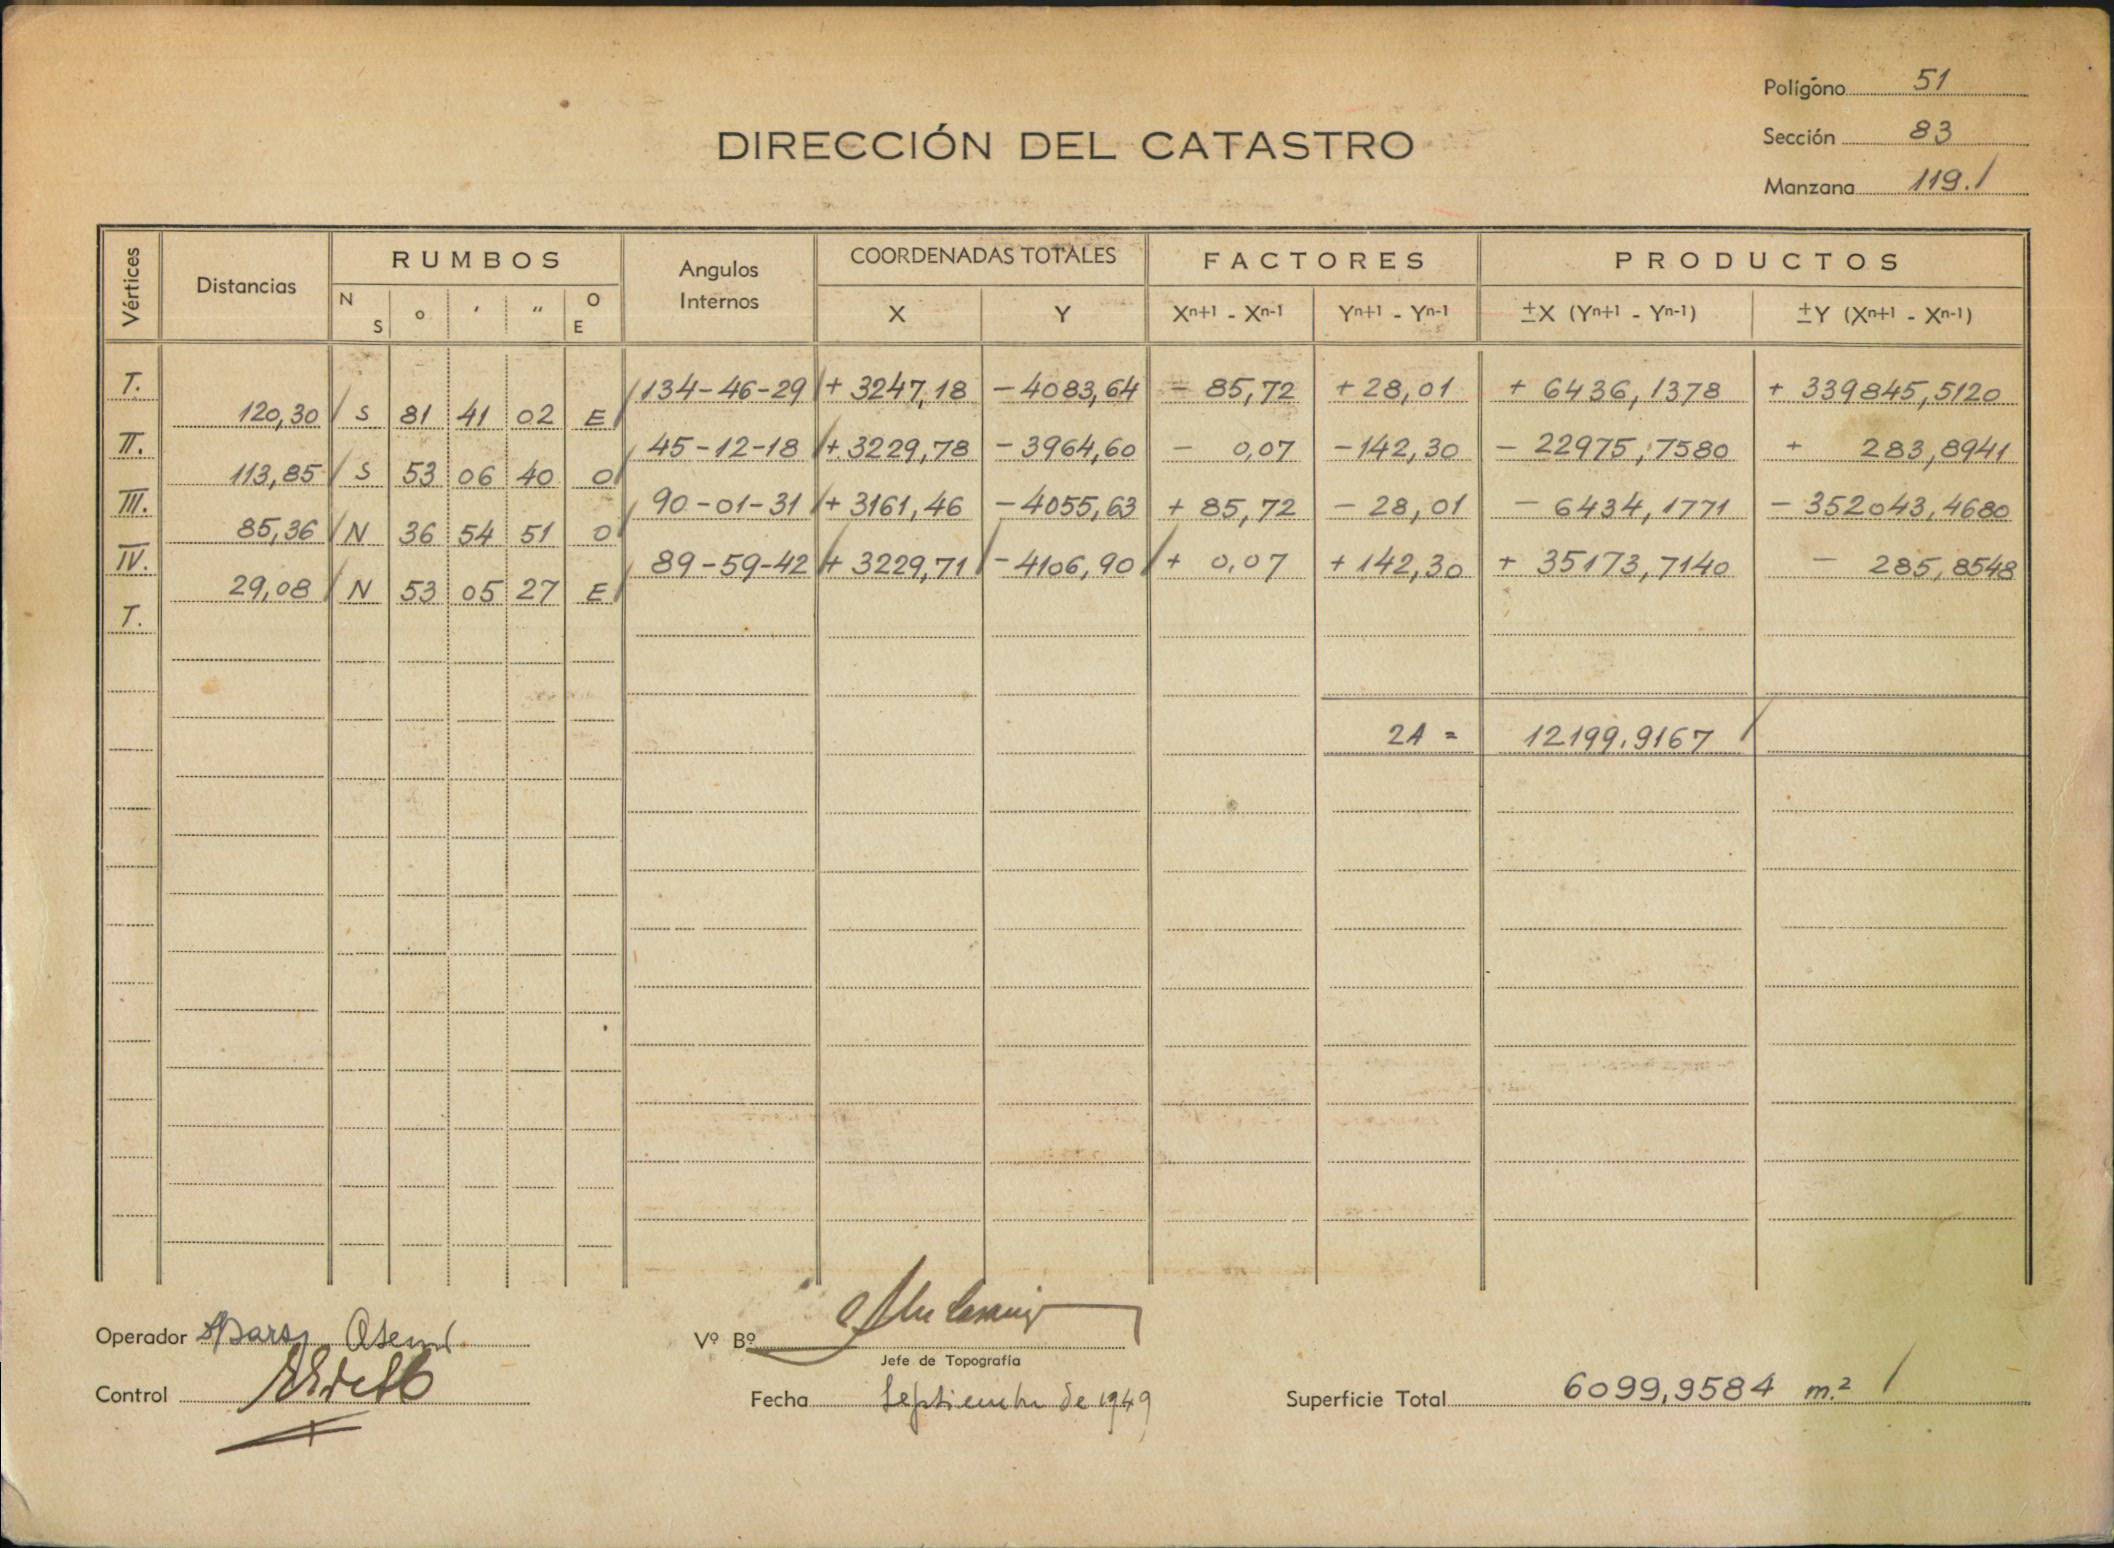 Polígono 51
DIRECCIÓN DEL CATASTRO
Sección 83
Manzana 119.
Vértices Distancias RUMBOS Angulos Internos COORDENADAS TOTALES FACTORES PRODUCTOS
N S o ' " O E X Y Xn+1 - Xn-1 Yn+1 - Yn-1 ±X (Yn+1 - Yn-1) ±Y (Xn+1 - Xn-1)
I. 134-46-29 + 3247,18 - 4083,64 - 85,72 + 28,01 + 6436,1378 + 339845,5120
120,30 S 81 41 02 E
II. 45-12-18 + 3229,78 - 3964,60 - 0,07 - 142,30 - 22975,7580 + 283,8941
113,85 S 53 06 40 O
III. 90-01-31 + 3161,46 - 4055,63 + 85,72 - 28,01 - 6434,1771 - 352043,4680
85,36 N 36 54 51 O
IV. 89-59-42 + 3229,71 - 4106,90 + 0,07 + 142,30 + 35173,7140 - 285,8548
29,08 N 53 05 27 E
I.
2A = 12199,9167
Operador
Vº Bº
Jefe de Topografía
Control
Fecha Septiembre de 1949
Superficie Total 6099,9584 m.²